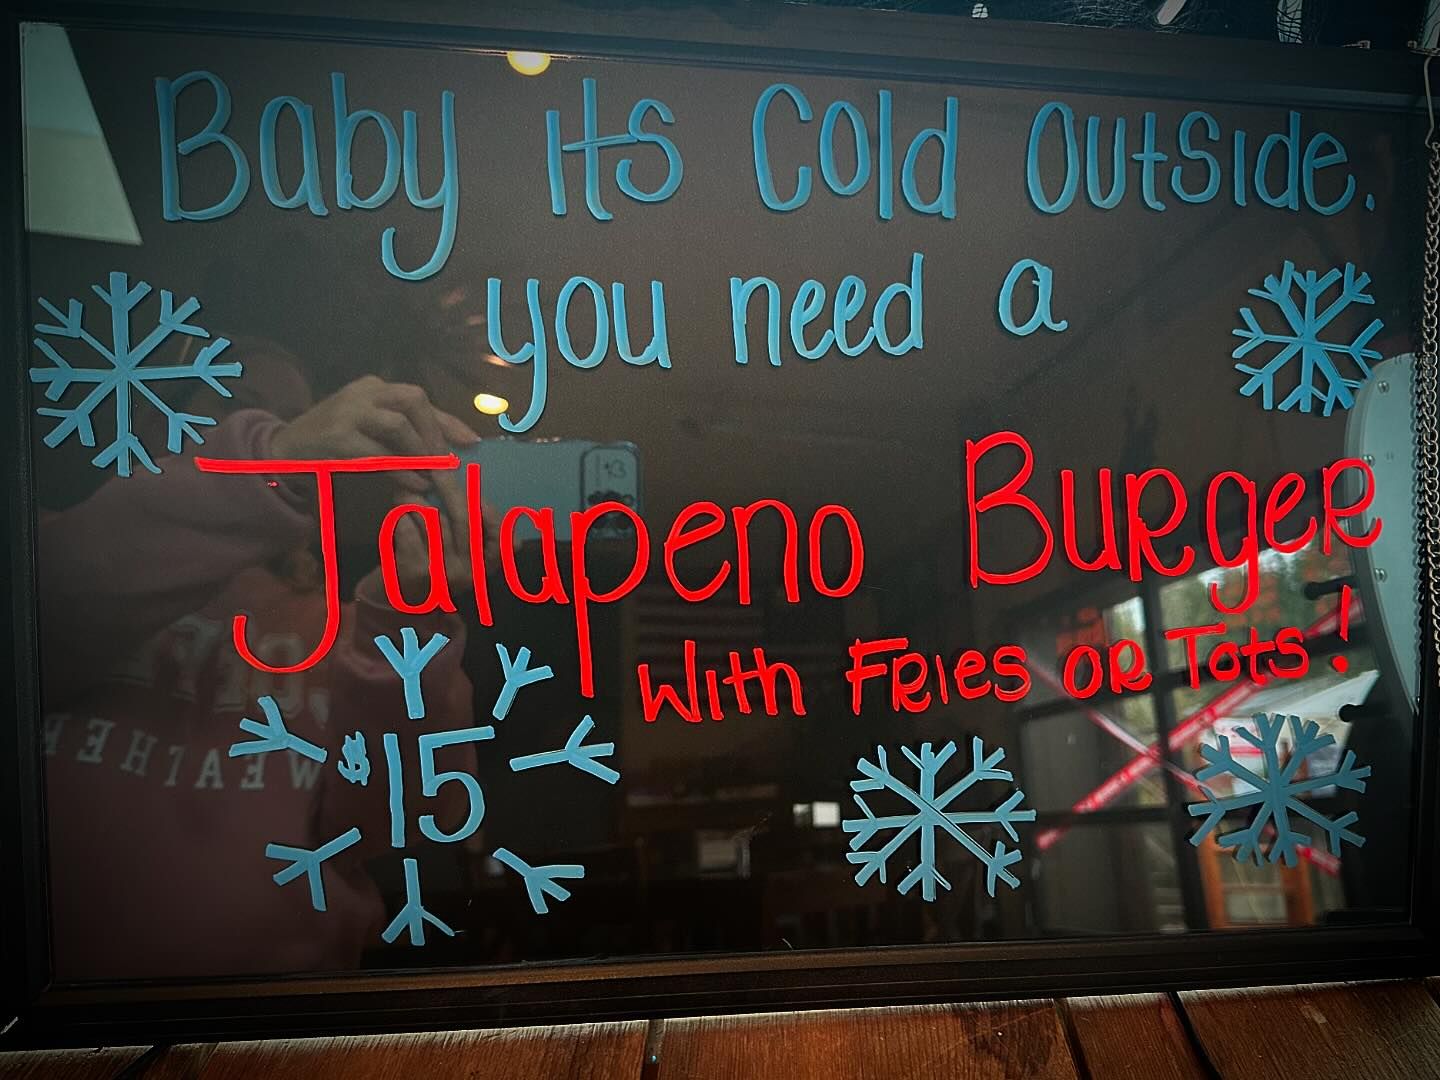 Baby its Cold Outside.
you need a
Jalapeno Burger
With Fries or Tots!
$15
WEATHER